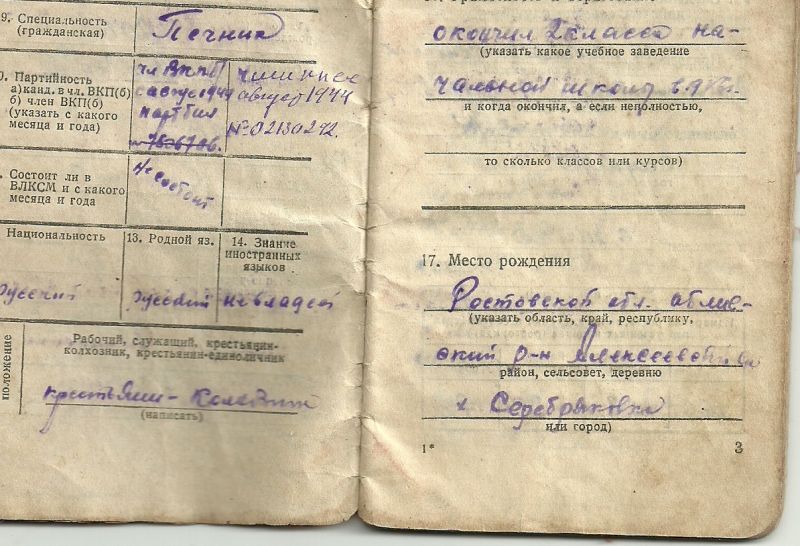 9. Специальность
(гражданская)
Печник
0. Партийность
а)канд. в чл. ВКП(б)
б) член ВКП(б)
(указать с какого
месяца и года)
чл ВКПб
с август 1944
партбил
август 1944
№02130292.
. Состоит ли в
ВЛКСМ и с какого
месяца и года
не состоит
Национальность
русский
13. Родной яз.
русский
14. Знание
иностранных
языков
не владеет
положение
Рабочий, служащий, крестьянин-
колхозник, крестьянин-единоличник
крестьянин-колхозник
(написать)
окончил 2 класса на-
(указать какое учебное заведение
чальной школы в
и когда окончил, а если неполностью,
то сколько классов или курсов)
17. Место рождения
Ростовской обл. обли-
(указать область, край, республику,
ский р-н Алексеевский
район, сельсовет, деревню
Серебряковка
или город)
1*
3